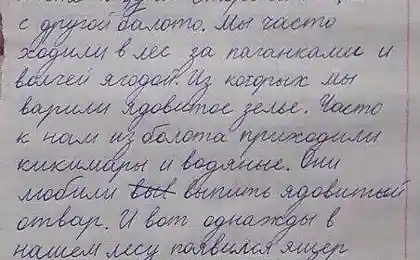 с другой балото. Мы часто
ходили в лес за паганками и
волчей ягодой. Из которых мы
варили ядовитое зелье. Часто
к нам из болота приходили
кикимары и водяные. Они
любили вып выпить ядовитый
отвар. И вот однажды в
нашем лесу появился ящер